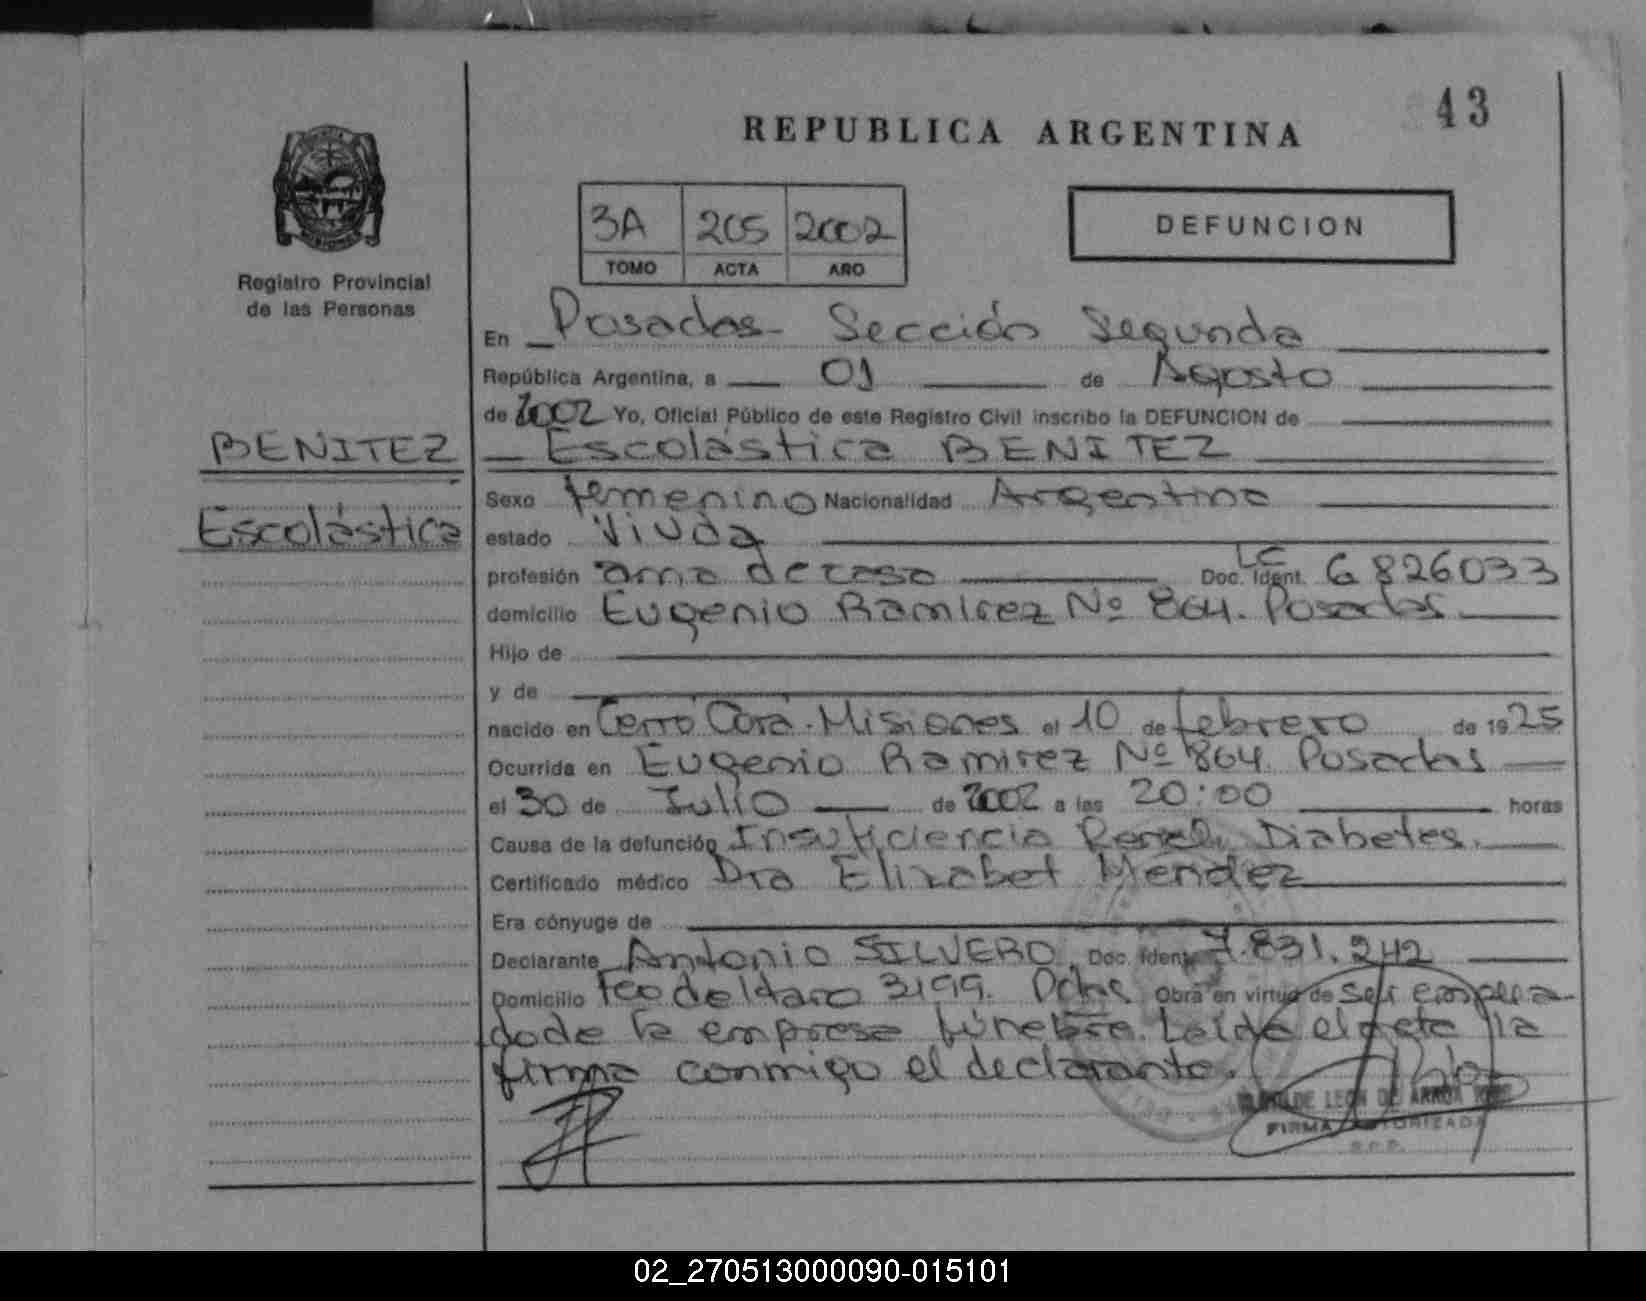 43
REPUBLICA ARGENTINA
3A 205 2002
TOMO ACTA AÑO
DEFUNCION
Registro Provincial
de las Personas
BENITEZ
Escolástica
En Posadas - Sección Segunda
República Argentina, a 01 de Agosto
de 2002 Yo, Oficial Público de este Registro Civil inscribo la DEFUNCION de
Escolástica BENITEZ
Sexo femenino Nacionalidad Argentina
estado Viuda
profesión ama de casa Doc. Ident. LC 6826033
domicilio Eugenio Ramirez Nº 864. Posadas
Hijo de
y de
nacido en Cerro Corá - Misiones el 10 de febrero de 1925
Ocurrida en Eugenio Ramirez Nº 864 Posadas
el 30 de Julio de 2002 a las 20:00 horas
Causa de la defunción Insuficiencia Renal, Diabetes.
Certificado médico Dra Elizabet Mendez
Era cónyuge de
Declarante Antonio SILVERO Doc. Ident. 7.831.242
Domicilio Fco de Haro 3199. Pdas Obra en virtud de ser emplea-
do de la empresa fúnebre. Leída el acta la
firma conmigo el declarante.
DE LEON DE
FIRMA AUTORIZADA
R.P.P.
02_270513000090-015101